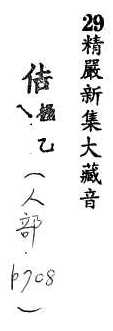 29精嚴新集大藏音
佶極乙
入
(人部.p708)